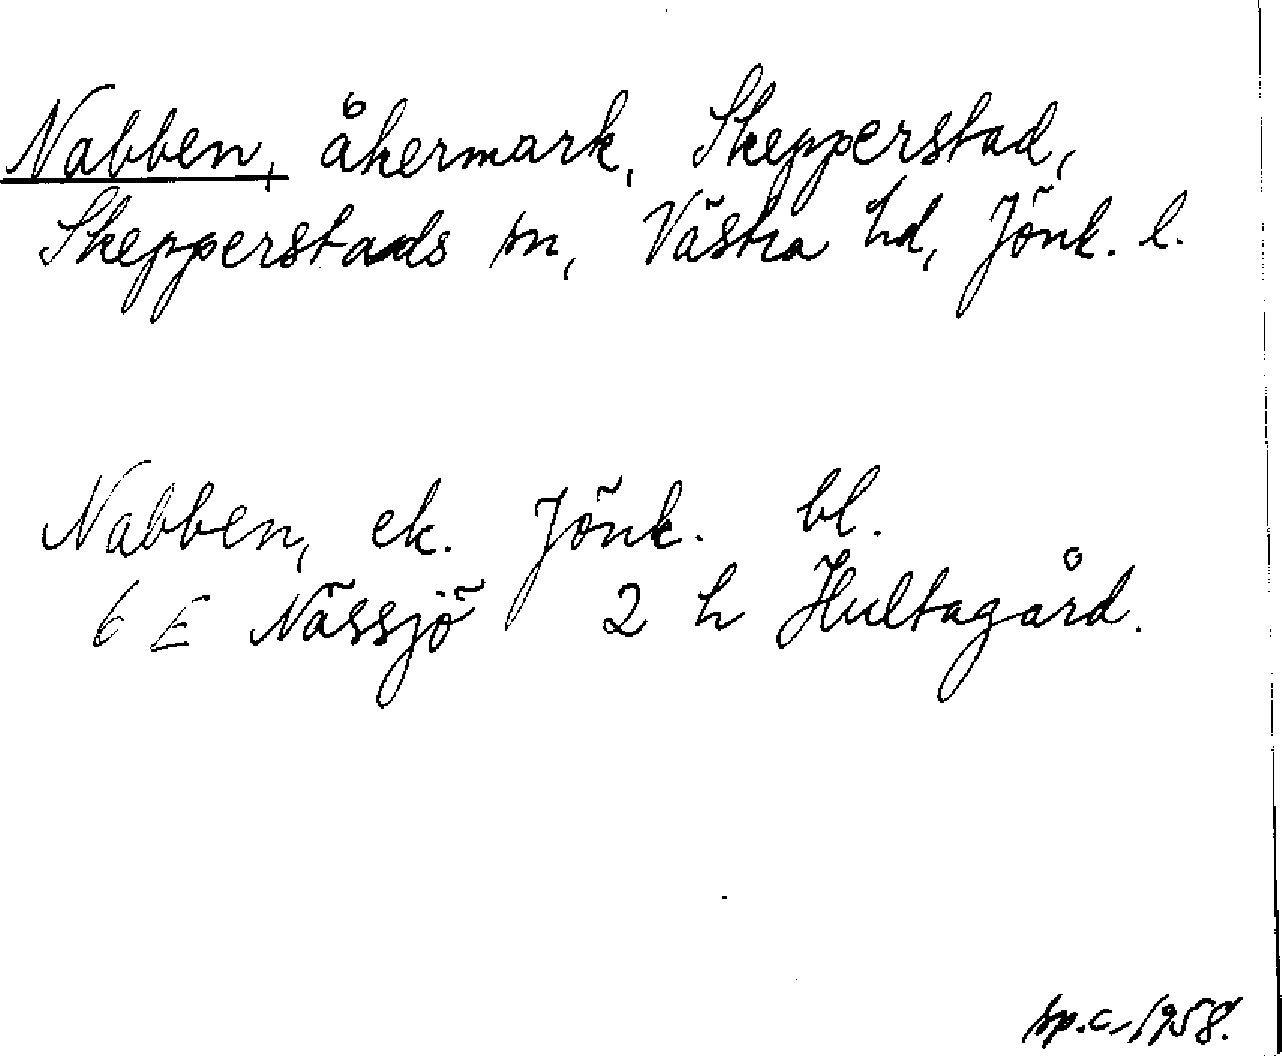 Nabben, åkermark, Skepperstad,
Skepperstads sn, Västra hd, Jönk. l.
Nabben, ek. Jönk. bl.
6 E Nässjö 2 h Hultagård.
sp.c. 1958.